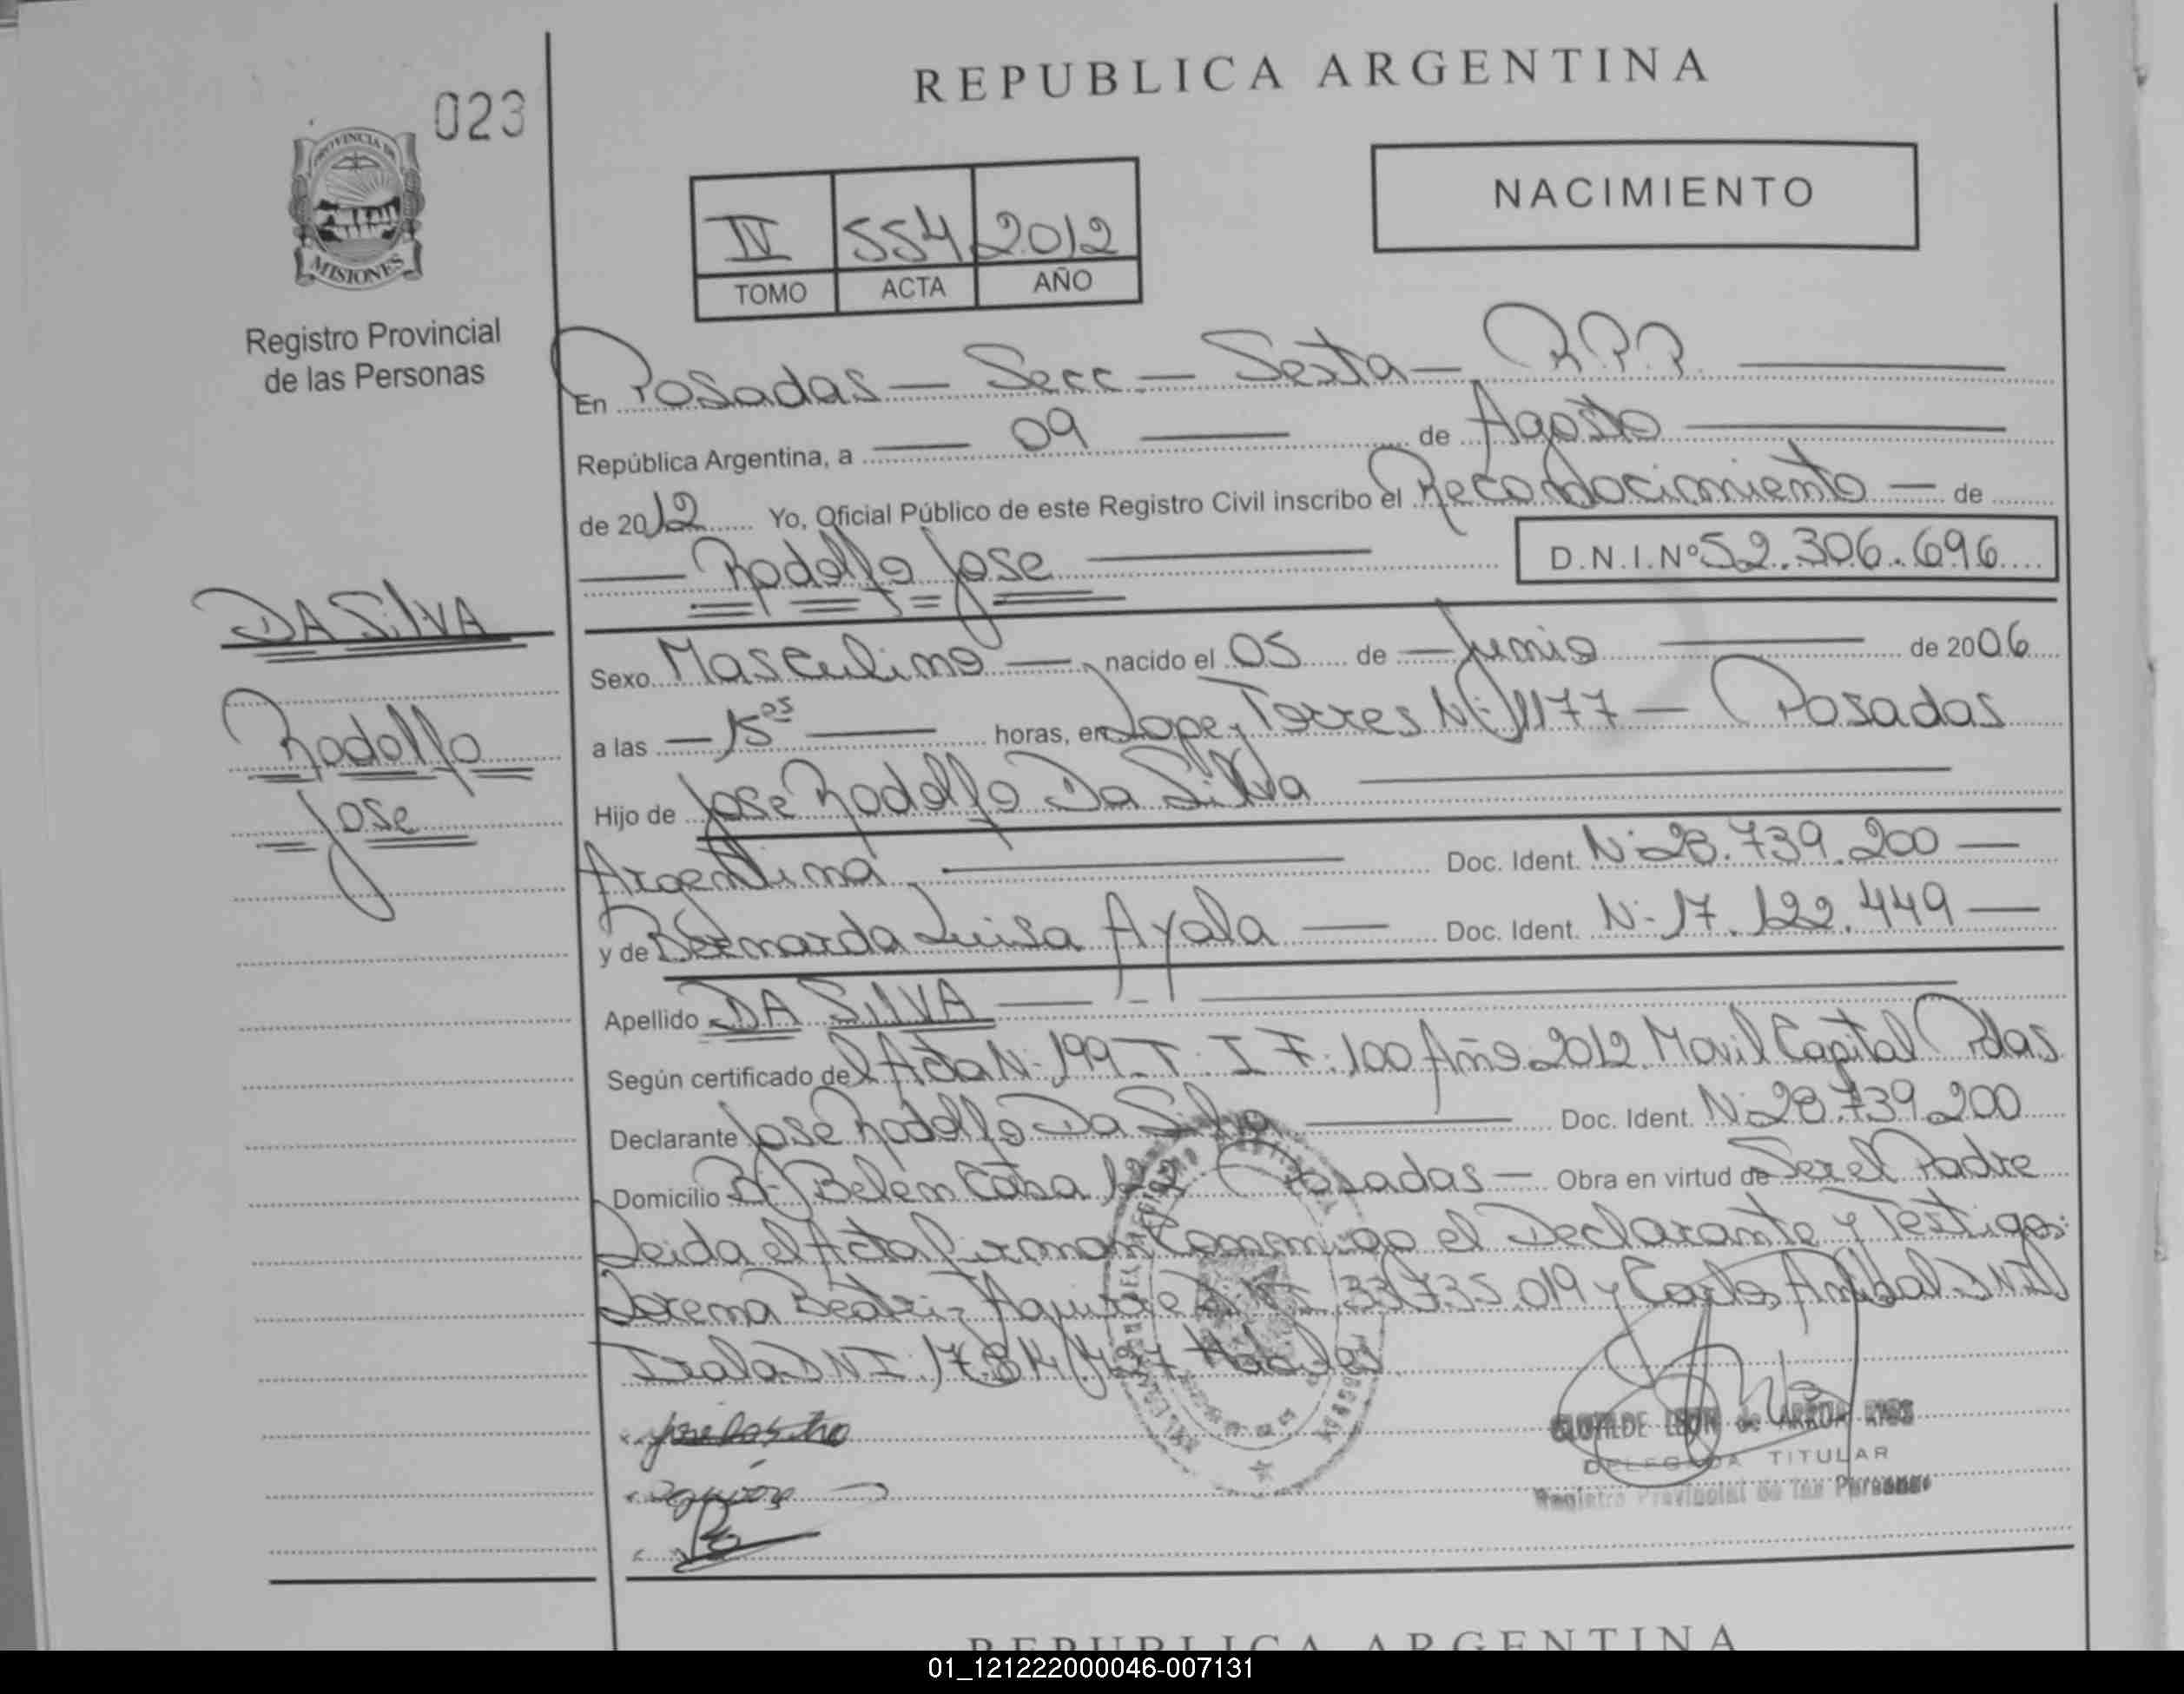 REPUBLICA ARGENTINA
023
PROVINCIA DE
MISIONES
Registro Provincial
de las Personas
NACIMIENTO
IV 554 2012
TOMO ACTA AÑO
En Posadas - Secc - Sexta - R.P.P.
República Argentina, a 09 de Agosto
de 2012 Yo, Oficial Público de este Registro Civil inscribo el Reconocimiento - de
Rodolfo Jose D.N.I.Nº 52.306.696
DA SILVA
Rodolfo
Jose
Sexo Masculino - nacido el 05 de - Junio de 2006
a las - 15 05 horas, en Lopez Torres Nº 1177 - Posadas
Hijo de Jose Rodolfo Da Silva
Argentina Doc. Ident. Nº 28.739.200 -
y de Bernarda Luisa Ayala - Doc. Ident. Nº 17.122.449 -
Apellido DA SILVA
Según certificado del Acta Nº 199 - T. I F. 100 Año 2012 Movil Capital Pdas
Declarante Jose Rodolfo Da Silva Doc. Ident. Nº 28.739.200
Domicilio Bº Belen Casa 122 Posadas - Obra en virtud de Ser el Padre
Leida el Acta firman Conmigo el Declarante y Testigos:
Lorena Beatriz Aguirre 33.735.019 y Carlos Anibal DNI
Irala DNI. 17.
CLOTILDE LEON de ARRUA RIOS
DELEGADA TITULAR
Registro Provincial de las Personas
REPUBLICA ARGENTINA
01_121222000046-007131